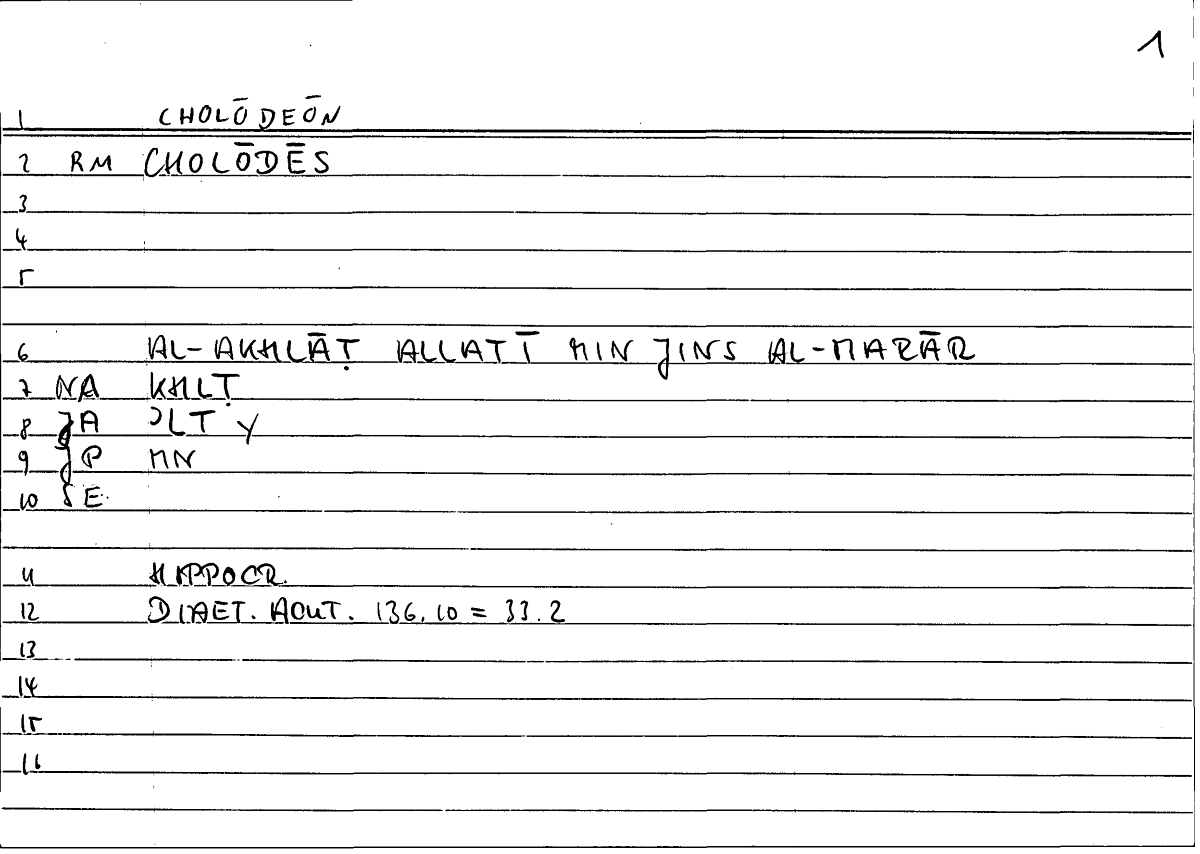 1
1 CHOLŌDEŌN
2 RM CHOLŌDĒS
3
4
5
6 AL-AKHLĀṬ ALLATĪ MIN JINS AL-MARĀR
7 NA KHLṬ
8 JA ʾLTY
9 JP MN
10 SE
11 HIPPOCR.
12 DIAET. ACUT. 136.10 = 33.2
13
14
15
16